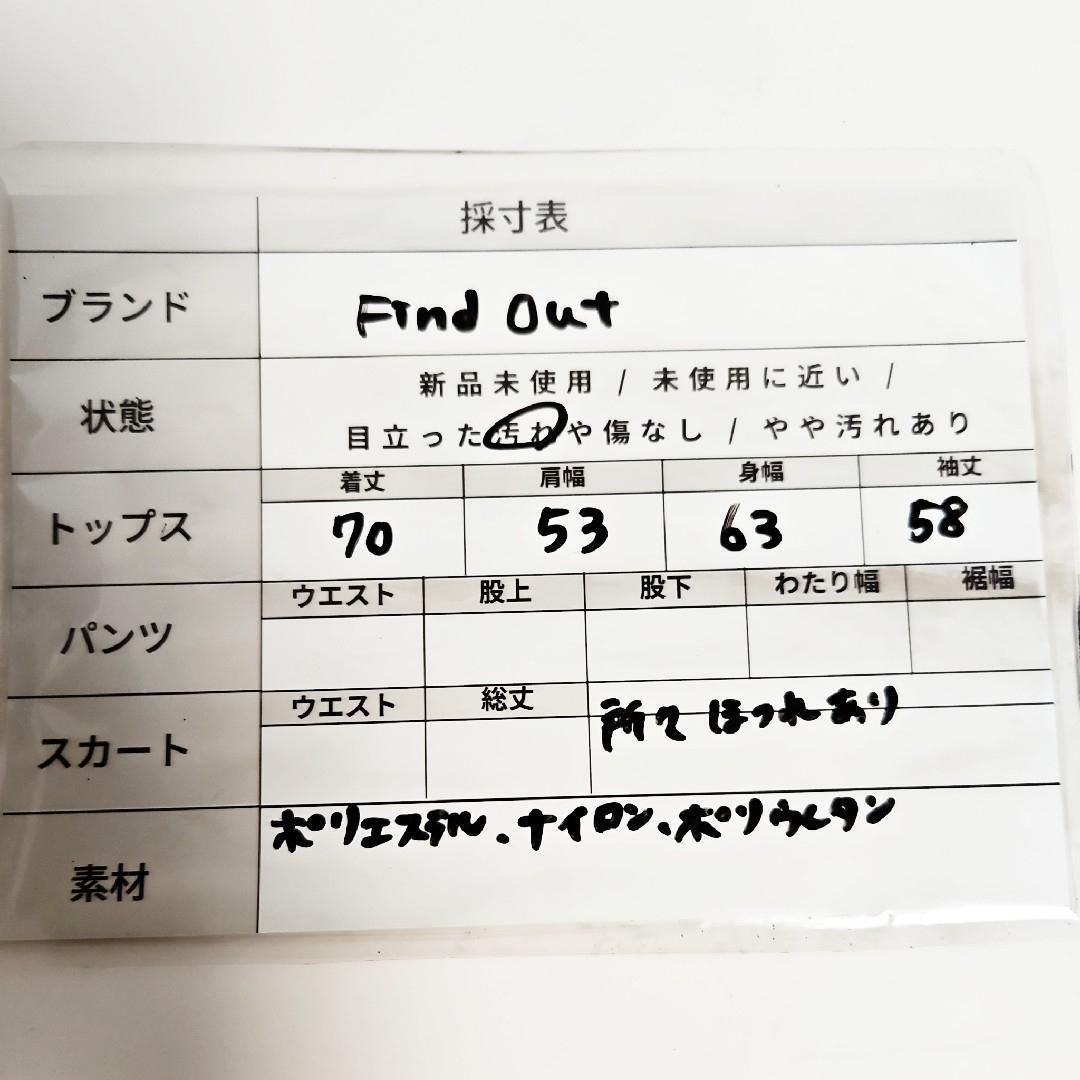 採寸表
ブランド Find Out
状態 新品未使用 / 未使用に近い /
目立った汚れや傷なし / やや汚れあり
着丈 肩幅 身幅 袖丈
トップス 70 53 63 58
ウエスト 股上 股下 わたり幅 裾幅
パンツ
ウエスト 総丈
所々ほつれあり
スカート
ポリエステル、ナイロン、ポリウレタン
素材